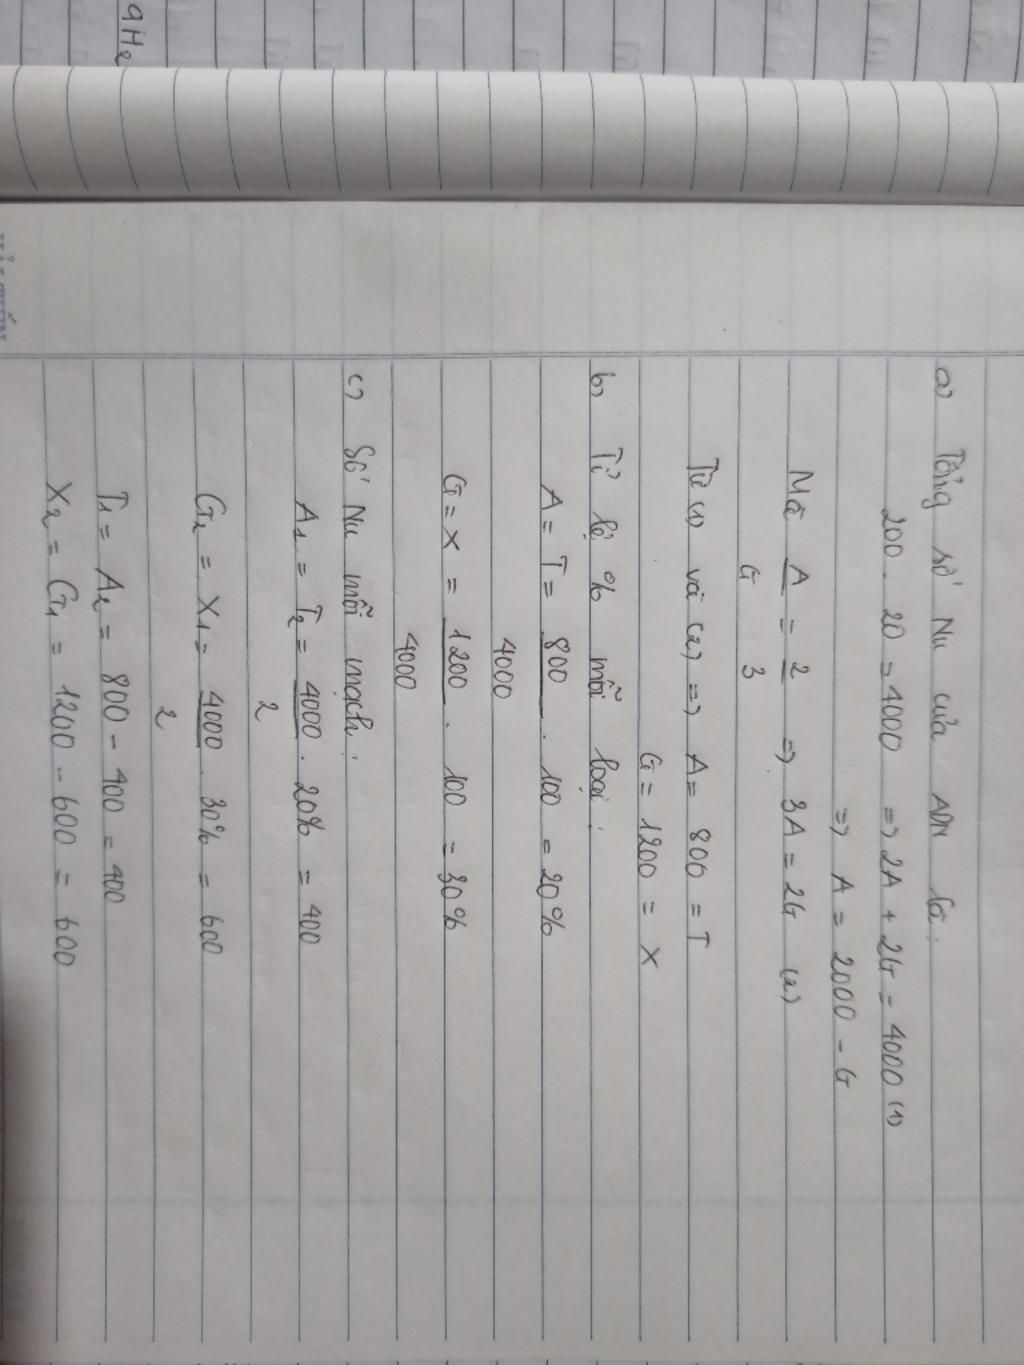 a) Tổng số Nu của ADN là:
200 . 20 = 4000 => 2A + 2G = 4000 (1)
=> A = 2000 - G
Mà A/G = 2/3 => 3A = 2G (2)
Từ (1) và (2) => A = 800 = T
G = 1200 = X
b) Tỉ lệ % mỗi loại:
A = T = 800/4000 . 100 = 20%
G = X = 1200/4000 . 100 = 30%
c) Số Nu mỗi mạch:
A1 = T2 = 4000/2 . 20% = 400
G2 = X1 = 4000/2 . 30% = 600
T1 = A2 = 800 - 400 = 400
X2 = G1 = 1200 - 600 = 600
9H2